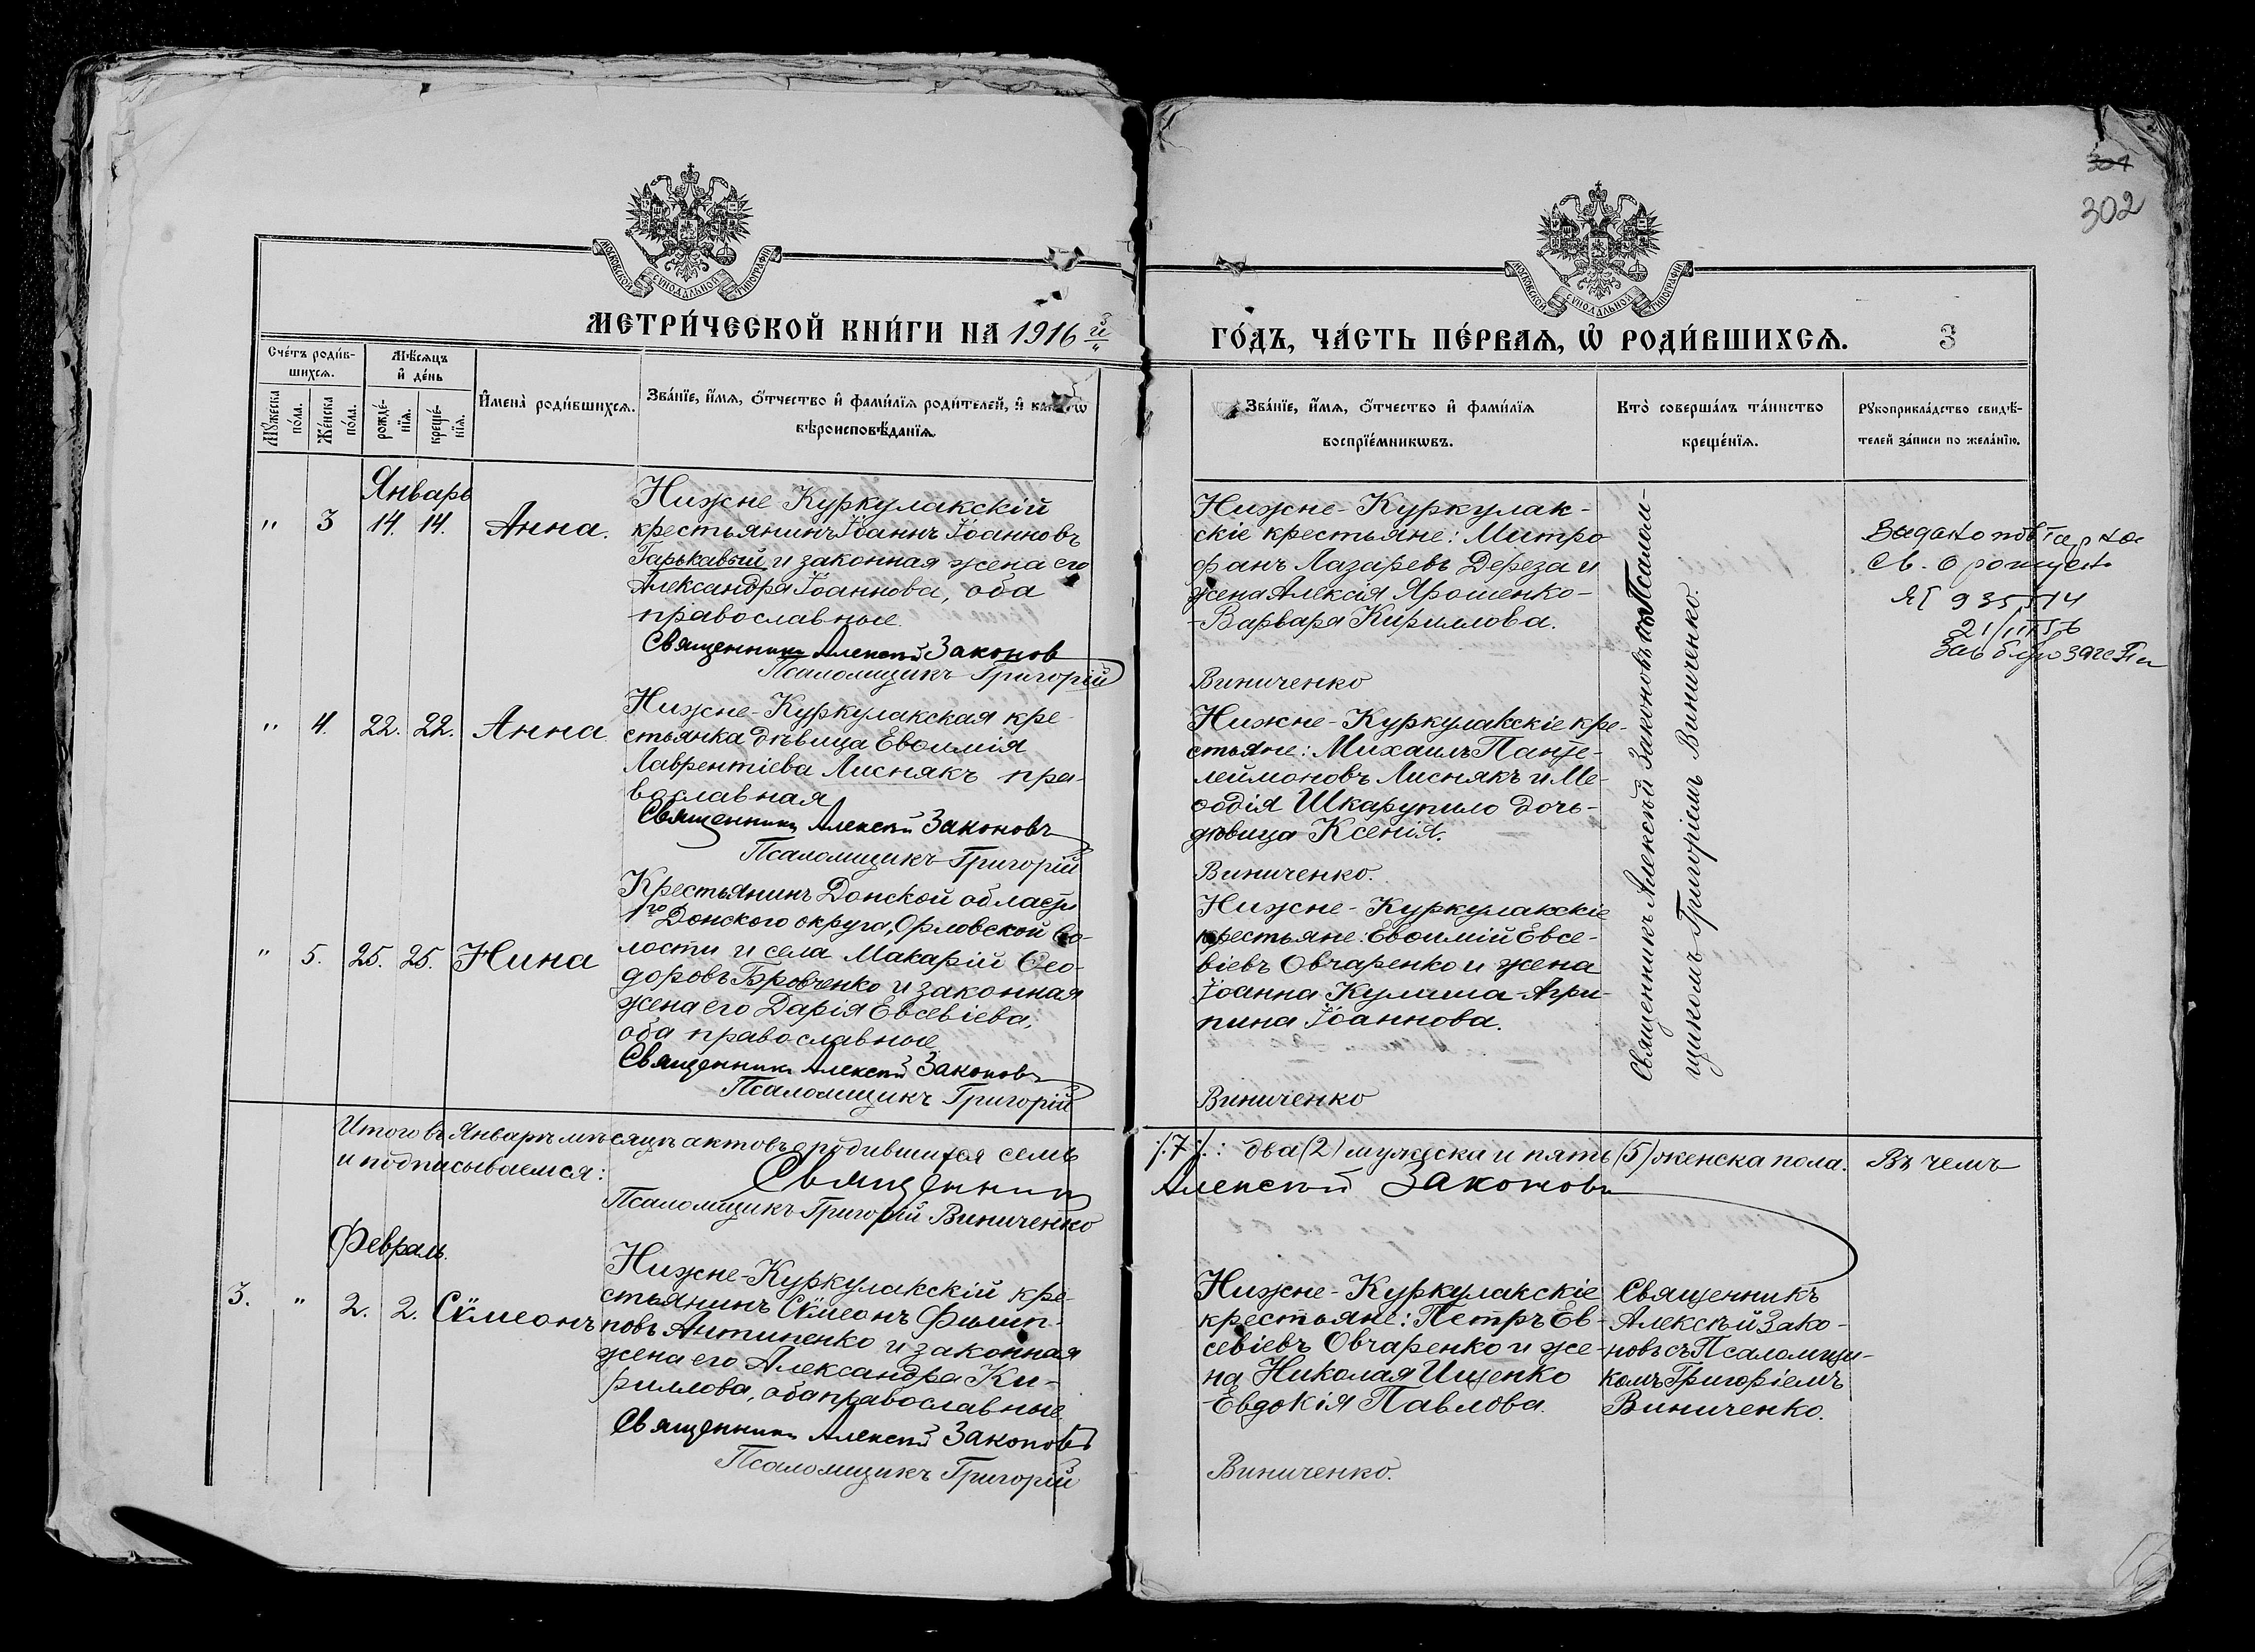 304
302
МОСКОВСКОЙ СѴНОДАЛЬНОЙ ТИПОГРАФІИ
МОСКОВСКОЙ СѴНОДАЛЬНОЙ ТИПОГРАФІИ
МЕТРИ́ЧЕСКОЙ КНИ́ГИ НА 1916й
ГО́ДЪ, ЧА́СТЬ ПЕ́РВАѦ, Ѡ҆ РОДИ́ВШИХСѦ. 3
Сче́тъ роди́в-
шихсѧ.
Мꙋ́жеска
по́ла.
Же́нска
по́ла.
Мѣ́сѧцъ
и҆ де́нь
рожде́-
нїѧ.
креще́-
нїѧ.
И҆мена̀ роди́вшихсѧ.
Зва́нїе, и҆́мѧ, ѻ҆́тчество и҆ фами́лїѧ роди́телей, и҆
вѣроисповѣ́данїѧ.
Зва́нїе, и҆́мѧ, ѻ҆́тчество и҆ фами́лїѧ
воспрїе́мникѡвъ.
Кто̀ соверша́лъ та́инство
креще́нїѧ.
Рꙋкоприкла́дство свидѣ́-
телей за́писи по жела́нїю.
Январь
" 3 14. 14. Анна.
Нижне Куркулакскій
крестьянинъ Іоаннъ Іоанновъ
Гарькавый и законная жена его
Александра Іоаннова, оба
православные.
Священникъ Алексій Законов
Псаломщикъ Григорій
Нижне-Куркулак-
скіе крестьяне: Митро
фанъ Лазаревъ Дереза и
жена Алексія Ярошенко-
-Варвара Кириллова.
Виниченко
Священникъ Алексѣй Законовъ съ Псалом-
щикомъ Григоріемъ Виниченко.
Св. о рожден
935514
" 4. 22. 22. Анна
Нижне-Куркулакская кре-
стьянка дѣвица Евѳимія
Лаврентіева Лиснякъ пра-
вославная
Священникъ Алексій Законовъ
Псаломщикъ Григорій
Нижне-Куркулакскіе кре-
стьяне: Михаилъ Панте-
леймоновъ Лиснякъ и Ме-
ѳодія Шкарупило дочь-
дѣвица Ксенія.
Виниченко.
" 5. 25. 25. Нина
Крестьянинъ Донской области
1го Донского округа, Орловской во-
лости и села Макарій Ѳео-
доровъ Бровченко и законная
жена его Дарія Евсевіева,
оба православные
Священникъ Алексій Законовъ
Псаломщикъ Григорій
Нижне-Куркулакскіе
крестьяне: Евѳимій Евсе-
віевъ Овчаренко и жена
Іоанна Кулиша-Агри-
пина Іоаннова.
Виниченко
Итого въ Январѣ мѣсяцѣ актовъ о родившихся семь ./.7./.: два (2) мужеска и пять (5) женска пола. Въ чемъ
и подписываемся:
Священникъ Алексій Законовъ
Псаломщикъ Григорій Виниченко
Февраль.
3. " 2. 2. Сѵмеонъ
Нижне-Куркулакскій кре-
стьянинъ Сѵмеонъ Филип-
повъ Антипенко и законная
жена его Александра Ки-
риллова, оба православные
Священникъ Алексій Законовъ
Псаломщикъ Григорій
Нижне-Куркулакскіе
крестьяне: Петръ Ев-
севіевъ Овчаренко и же-
на Николая Ищенко
-Евдокія Павлова.
Виниченко.
Священникъ
Алексѣй Зако-
новъ съ Псаломщи-
комъ Григоріемъ
Виниченко.